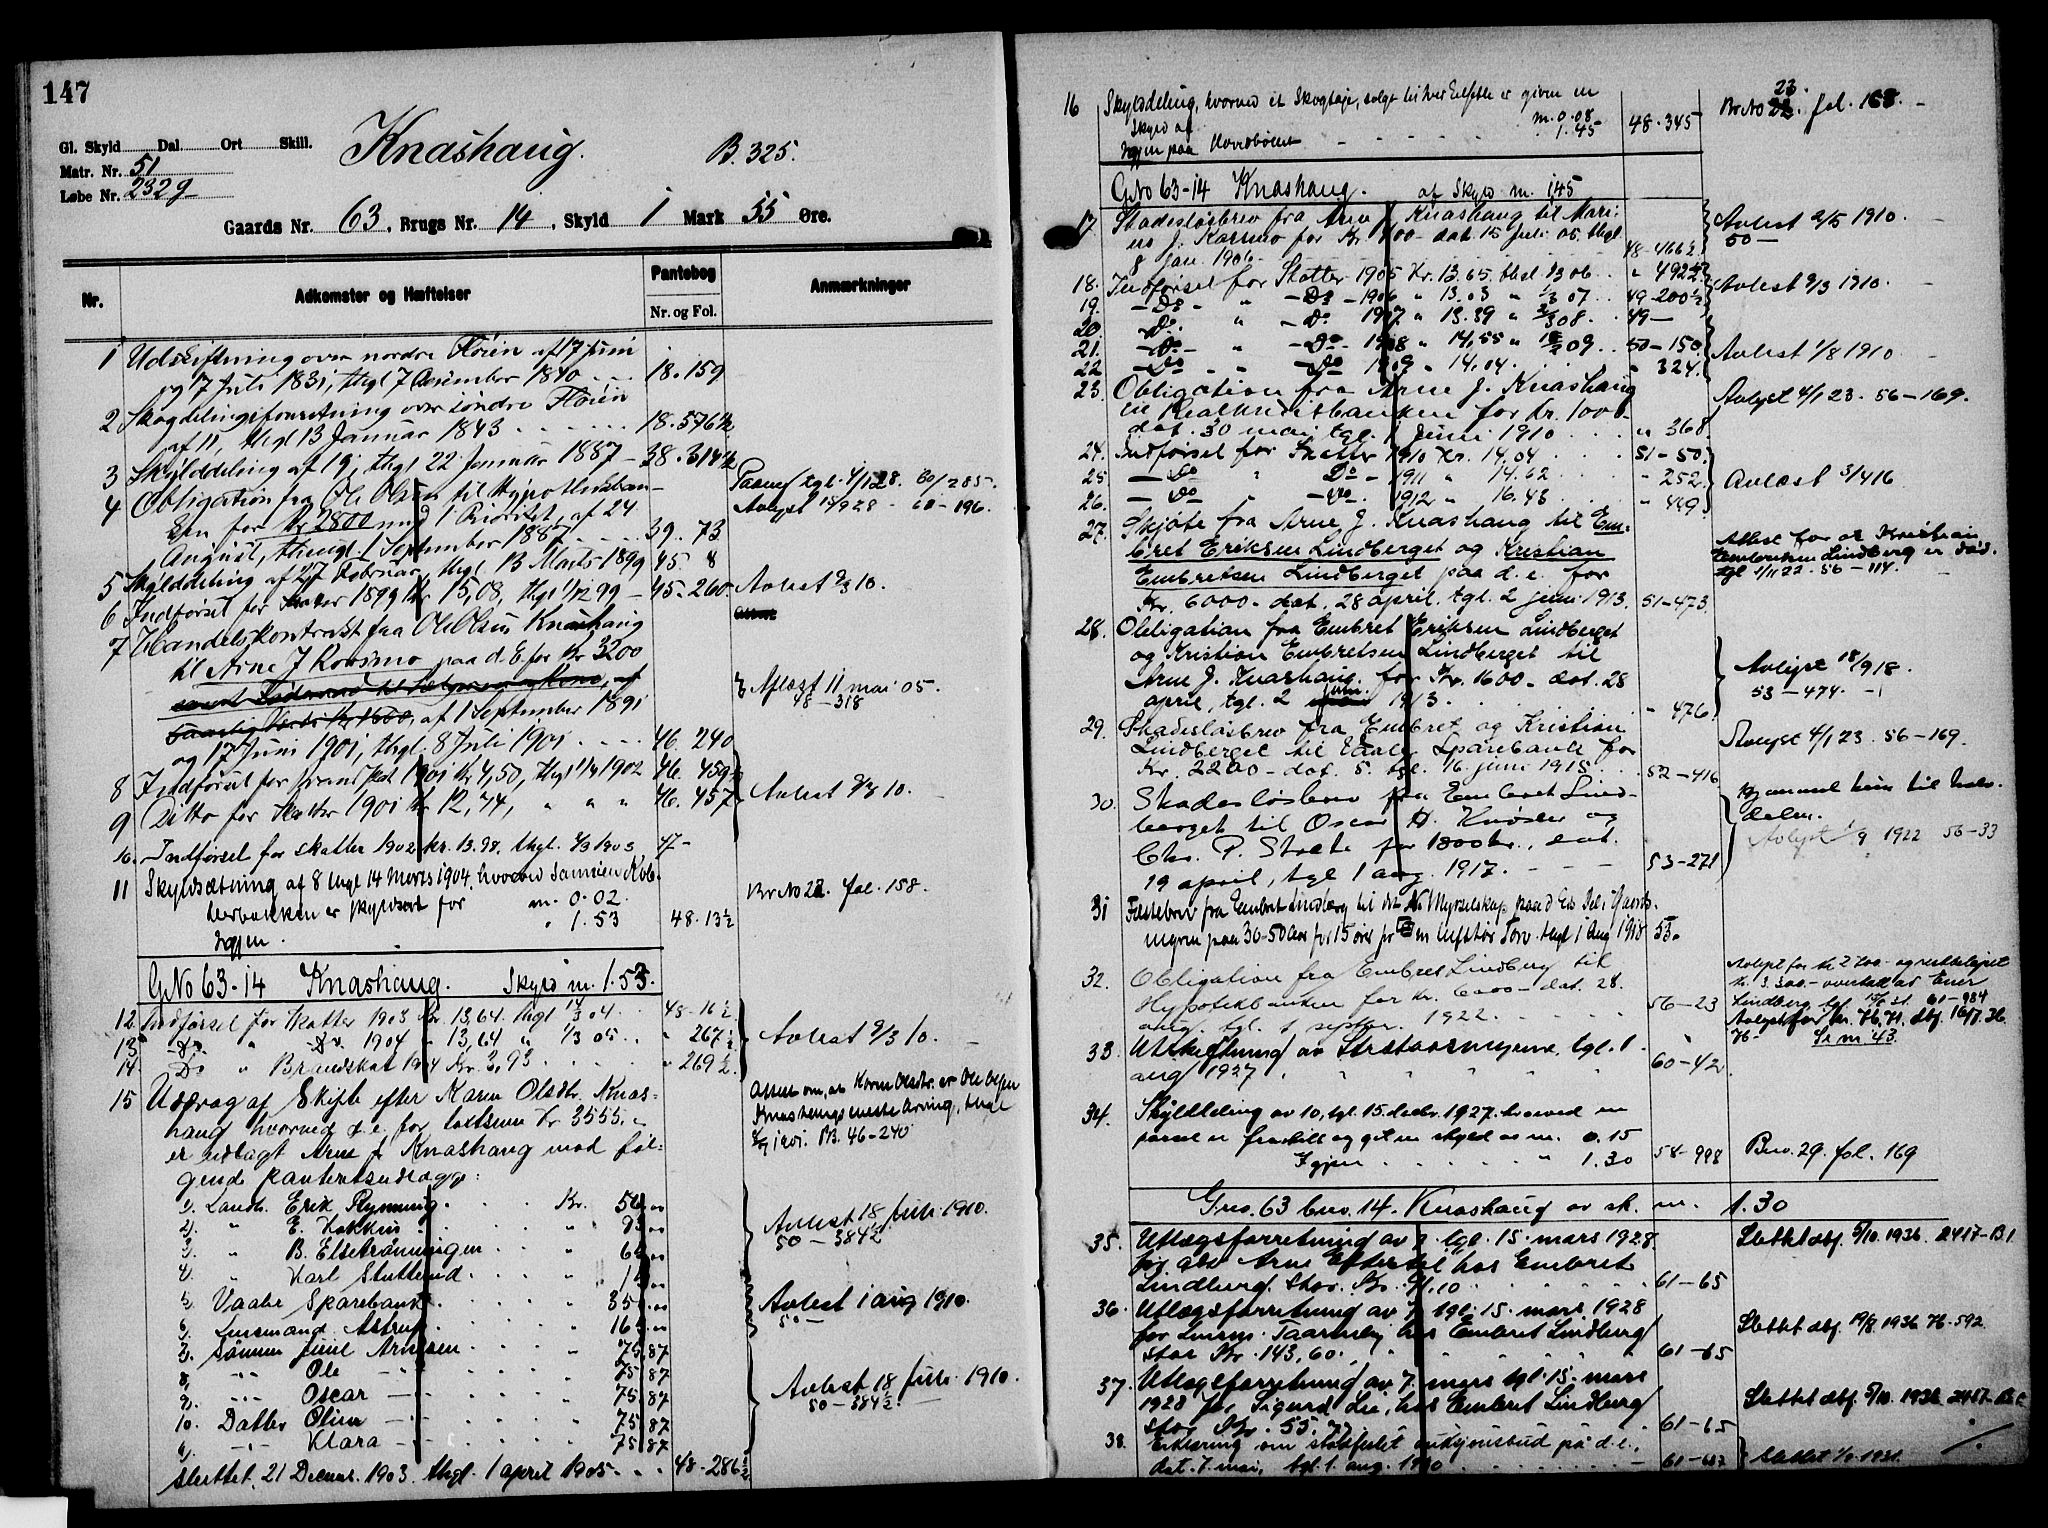 147
Gl. Skyld Dal. Ort Skill.
Knashaug.
B. 325.
Matr. Nr. 51
Løbe Nr. 232g
Gaards Nr. 63, Brugs Nr. 14, Skyld 1 Mark 55 Øre.
Nr. Adkomster og Hæftelser Pantebog Anmærkninger
Nr. og Fol.
1 Udskiftning over nordre Fløien af 17 Juni
og 17 Juli 1831, thgl 7 December 1840 18. 159
2 Skogdelingsforretning over søndre Fløien
af 11, thgl 13 Januar 1843 18. 576½
3 Skylddeling af 19, thgl 22 Januar 1887 38. 314½
4 Obligation fra Ole Olsen til Hypothekban-
ken for Kr 2800 mod 1 Prioritet, af 24
August, thingl. 1 September 1887 39. 73
Avlyst 15/9 28 - 60 - 196.
5 Skylddeling af 27 Februar, thgl 13 Marts 1899 45. 8
6 Indførsel for Skatter 1899 Kr 15,08, thgl 1/12 99 45-260 Avlest 9/3 10.
7 Handelskontrakt fra Ole Olsen Knashaug
til Arne J Korsmo paa d. E for Kr 3200
af 1 September 1891
og 17 Juni 1901, thgl. 8 Juli 1901 46. 240
Aflæst 11 mai 05.
48 - 318
8 Indførsel for Brandskat 1901 Kr 4,50, thgl 1/4 1902 46. 459½
9 Ditto for Skatter 1901 Kr 12,74, " " " 46. 457 Avlest 9/3 10.
10. Indførsel for skatter 1902 kr. 13.98. thgl. 4/3 1903 47-
11 Skyldsætning af 8 thgl 14 Marts 1904, hvorved Samuien Kob-
berbakken er skyldsat for m. 0.02.
Igjen. " 1.53 48. 13½
Br No 22. fol. 158.
G No 63-14 Knashaug. Skyld m. 1.53.
12 Indførsel for Skatter 1903 Kr. 13,64. thgl 14/3 04 48-16½
13 - Do " Do 1904 " 13,64 " 1/3 05 " 267½ Avlest 9/3 10.
14. Do " Brandskat 1904 Kr. 3,93 " 269½
15 Uddrag af Skifte efter Karen Olsdtr. Knas-
haug hvorved d. e. for taktsum Kr 3555.
er udlagt Arne J Knashaug mod føl-
gende panteretsudlæg:
Attest om, at Karen Olsdtr. er Ole Olsen
Knashaugs eneste Arving, thgl
8/7 1901. PB. 46-240
1. Landh. Erik Rynning Kr. 50,00
2. " E. Kokkin 93,00
3. " B. Elsetrønningen 60,00
4. " Karl Sletlund
Avlest 18 juli 1910.
50 - 384½
5. Vaaler Sparebank 350,00
6. Lensmand Astrup 160,00
Avlest 1 aug 1910.
50 -
7. Sønnen Juul Arnesen 75,87
8. " Ole 75,87
9. " Oscar 75,87
10. Datter Olina 75,87
11. " Klara 75,87
Avlest 18 juli 1910.
50 - 384½.
sluttet 21 Decmr. 1903. thgl. 1 april 1905. 48-286½
16 Skylddeling, hvorved et Skogteie, solgt til Iver Eilseth er given en
Skyld af m. 0.08
Igjen paa Hovedbølet 1.45 48.345
Br No 23. fol. 168.
G No 63-14 Knashaug. af Skyld m. 1.45
17 Skadesløsbrev fra Arne J Knashaug til Mari-
us J. Korsmo for Kr 400 - dat. 15 Juli 05. thgl
8 jan. 1906. 48-466½
Avlest 2/5 1910.
50 -
18. Indførsel for Skatter 1905 Kr. 13.65. thgl. 1/3 06 " 492½
19. - Do " - Do - 1906 " 13.03 " 1/3 07 49-200½ Avlest 9/3 1910.
20. - Do. " - Do 1907 " 13.39 " 3/3 08 49 -
21. - Do - " - Do - 1908 " 14,55 " 50-150
22 - Do - " - Do 1909 " 14.04 " 324. Avlest 1/8 1910
23. Obligation fra Arne J. Knashaug
til Realkreditbanken for Kr. 1000 -
dat. 30 mai tgl. 1 Juni 1910 " 368
Avlyst 4/1 23. 56-169.
24. Indførsel for Skatter 1910 Kr. 14.04 51-50.
25 - Do " Do - 1911 " 14.62 " 252 Avlæst 3/4 16
26. - Do " - Do - 1912 " 16.48 " 449
27. Skjøte fra Arne J. Knashaug til Em-
bret Eriksen Lindberget og Kristian
Embretsen Lindberget paa d. e. for
Kr. 6000 - dat. 28 april. tgl. 2 juni 1913. 51-473
Attest for at Kristian
Embretsen Lindberg er død.
tgl 1/11 22. 56-114.
28. Obligation fra Embret Eriksen Lindberget
og Kristian Embretsen Lindberget til
Arne J. Knashaug. for Kr. 1600 - dat. 28
april, tgl. 2 juni 1913 " 476
Avlyst 18/9 18.
53-474.
29. Skadesløsbrev fra Embret og Kristian
Lindberget til Vaaler Sparebank for
Kr. 2200 - dat. 5. tgl. 16 juni 1915 52-416
Avlyst 4/1 23. 56-169.
30. Skadesløsbrev fra Embret Lind-
berget til Oscar A. Knøsler og
Chr. P. Stræte for 1800 kr., dat.
19 april, tgl 1 aug. 1917. 53-271
Hjemmel kun til halv-
delen.
Avlyst 1/9 1922 56-33
31 Festebrev fra Embret Lindberg til det N. Myrselskap paa d Es Del i Gaards-
myren paa 30-50 Aar for 15 øre pr m³ lufttør Torv. thgl 1 Aug 1918 53.
32. Obligation fra Embret Lindberg til
Hypotekbanken for kr. 6000 - dat. 28.
aug. tgl. 1 septbr. 1922. 56-23
Lindberg. tgl. 15/8 31. 61-984
Avlyst for kr. 76,71. dbj. 16/7 36.
76 - Se nr. 43.
33. Utskiftning av Strætaasmyrene, tgl. 1
aug 1927 60-42
34. Skylddeling av 10, tgl. 15. decbr. 1927. hvorved en
parsel er fraskilt og git en skyld av m. 0.15
Igjen " 1.30 58-998
Bnr. 29. fol. 169
Gnr. 63 bnr. 14. Knashaug av sk. m. 1.30
35. Utlægsforretning av 7. tgl. 15. mars 1928.
Arne hos Embret
Lindberg. Stor. Kr. 91,10 61-65
Slettet dbj. 5/10. 1936. 2417-B.1
36. Utlægsforretning av 7 tgl. 15. mars 1928
for Lensm. Taarneby hos Embret Lindberg
stor Kr. 143,60. 61-65
Slettet dbj. 19/8. 1936 76-592.
37. Utlægsforretning av 7. mars tgl. 15. mars
1928 for Sigurd Lie, hos Embret Lindberg
stor Kr. 55,77 61-65
Slettet dbj. 5/10. 1936 2417-
38. Erklæring om stadfestet auksjonsbud på d.e.,
dat. 7. mai, tgl. 1. aug. 1930
Slettet